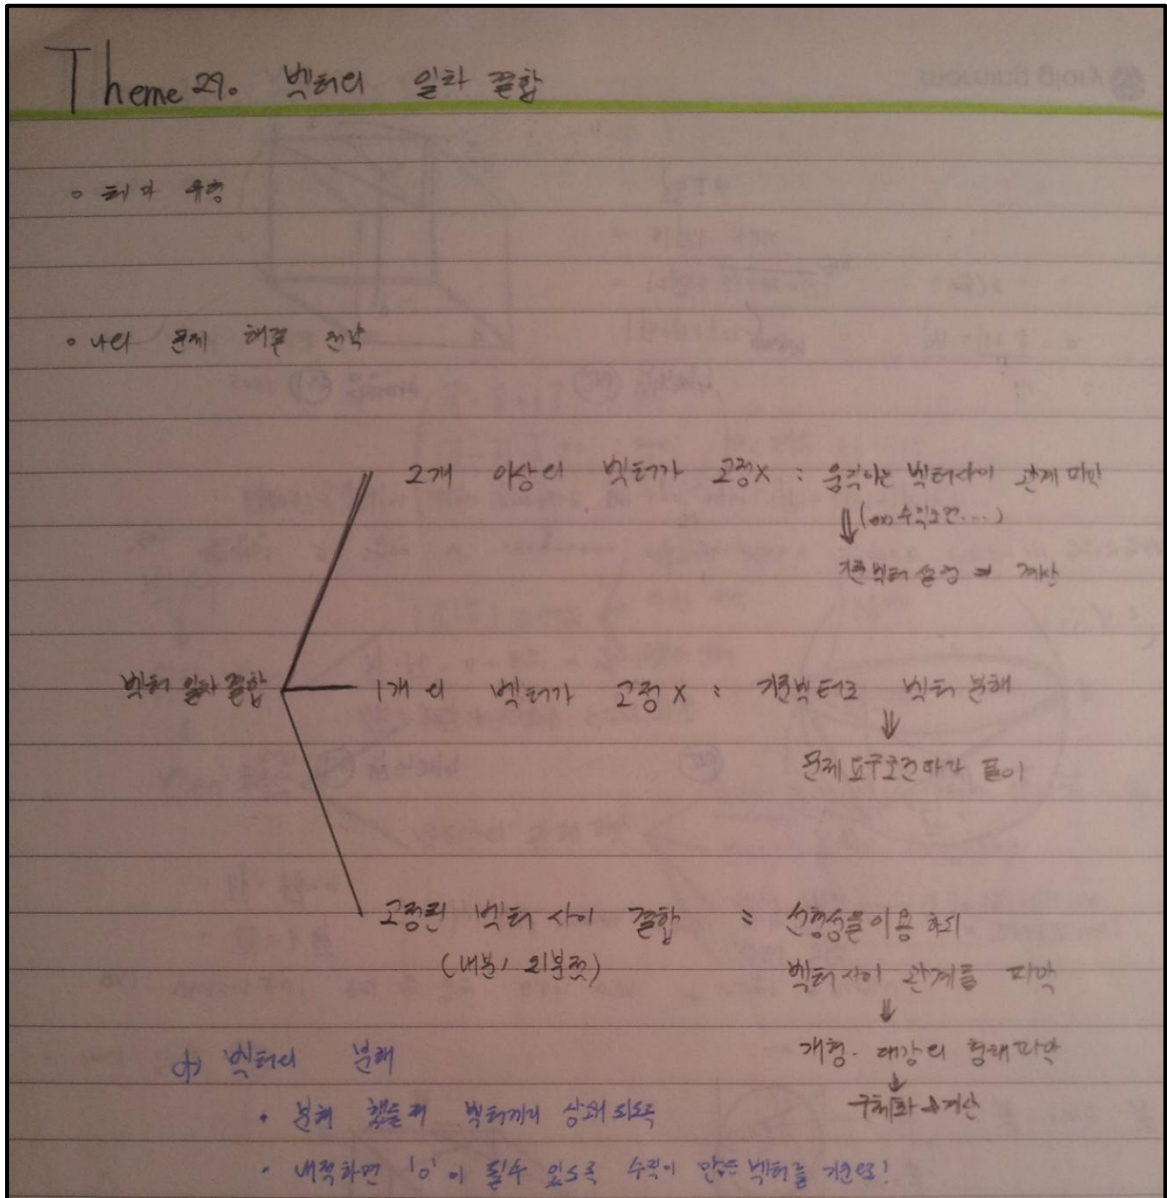 Theme 29. 벡터의 일차 결합
◦ 테마 유형
◦ 나의 문제 해결 전략
2개 이상의 벡터가 고정X : 움직이는 벡터사이 관계 파악
⇓(ex) 수직조건...)
기준벡터 설정 ⇒ 계산
벡터 일차 결합
1개의 벡터가 고정X : 기준벡터로 벡터 분해
⇓
문제 요구조건따라 풀이
고정된 벡터 사이 결합 : 선형성을 이용 하되
(내분, 외분점)
벡터사이 관계를 파악
⇓
개형. 대강의 형태파악
구체화 계산
벡터의 분해
• 분해 했을때 벡터끼리 상쇄되도록
• 내적하면 '0'이 될수 있도록 수직이 많은 벡터를 기준으로!